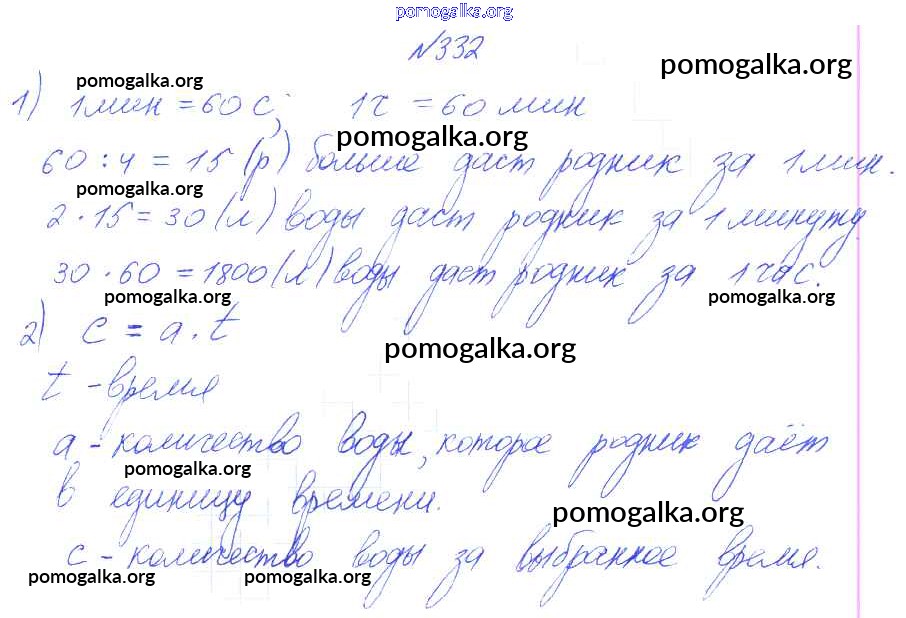 pomogalka.org
№332
pomogalka.org
pomogalka.org
1) 1мин = 60 с; 1ч = 60 мин
pomogalka.org
60 : 4 = 15 (р) больше даст родник за 1 мин.
pomogalka.org
2 · 15 = 30 (л) воды даст родник за 1 минуту
30 · 60 = 1800 (л) воды даст родник за 1 час.
pomogalka.org pomogalka.org
2) c = a · t
pomogalka.org
t - время
a - количество воды, которое родник даёт
pomogalka.org
в единицу времени.
pomogalka.org
c - количество воды за выбранное время.
pomogalka.org pomogalka.org